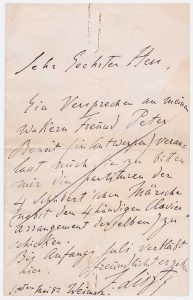 Sehr Geehrter Herr,
Ein Versprechen an meinen
Wakern Freund Peter
Benoit (in Antwerpen) veran-
lasst mich Sie zu bitten
mir die Partituren der
4 Schubert'schen Märsche
(nebst dem 4händigen Clavier
arrangement derselben) zu
schicken.
Bis Anfangs Juli verbleibt
hier
freundlichst ergeb
F. Liszt
Weimar